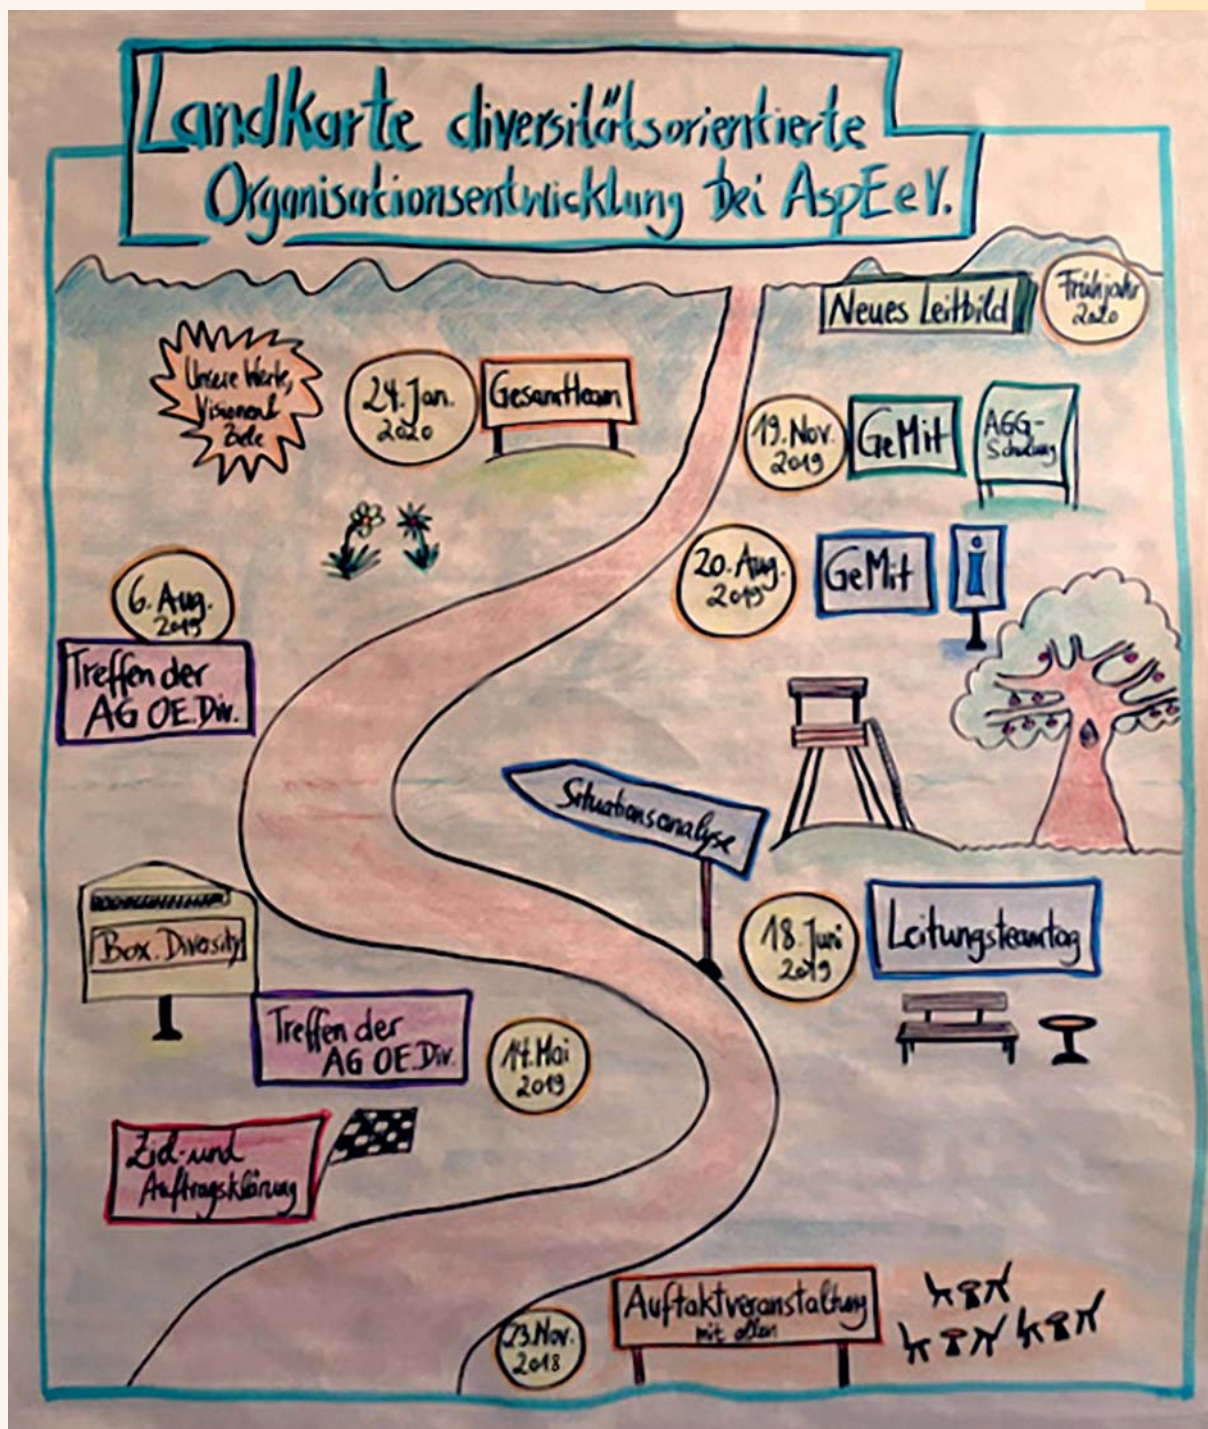 Landkarte diversitätsorientierte
Organisationsentwicklung bei AspE e.V.
Neues Leitbild
Frühjahr
2020
Unsere Werte,
Visionen &
Ziele
24. Jan.
2020
Gesamtteam
19. Nov.
2019
GeMit
AGG-
Schulung
20. Aug.
2019
GeMit
i
6. Aug.
2019
Treffen der
AG OE.Div.
Situationsanalyse
18. Juni
2019
Leitungsteamtag
Box. Diversity
Treffen der
AG OE.Div.
14. Mai
2019
Ziel- und
Auftragsklärung
23. Nov.
2018
Auftaktveranstaltung
mit allen